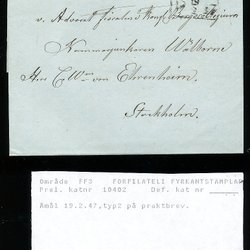 v. Advocat fiscalen
Kammarjunkaren
Herr C Wm von Ehrenheim.
Stockholm.
Område FF3 FORFILATELI FYRKANTSTÄMPLAR
Prel. katnr 10402 Def. kat nr
Åmål 19.2.47, typ2 på praktbrev.